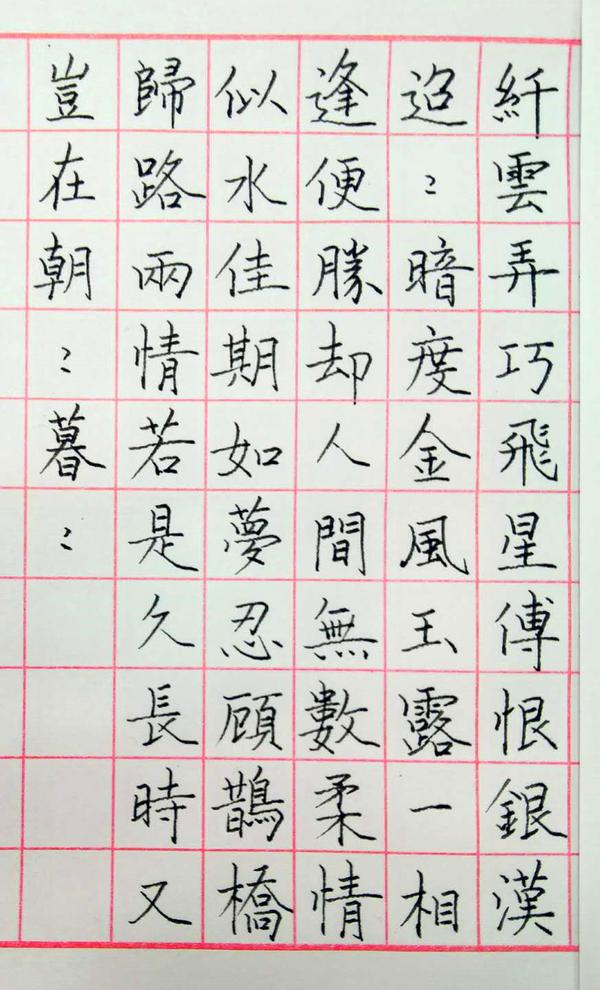 纤雲弄巧飛星傳恨銀漢
迢〻暗度金風玉露一相
逢便勝却人間無數柔情
似水佳期如夢忍顧鵲橋
歸路兩情若是久長時又
豈在朝〻暮〻